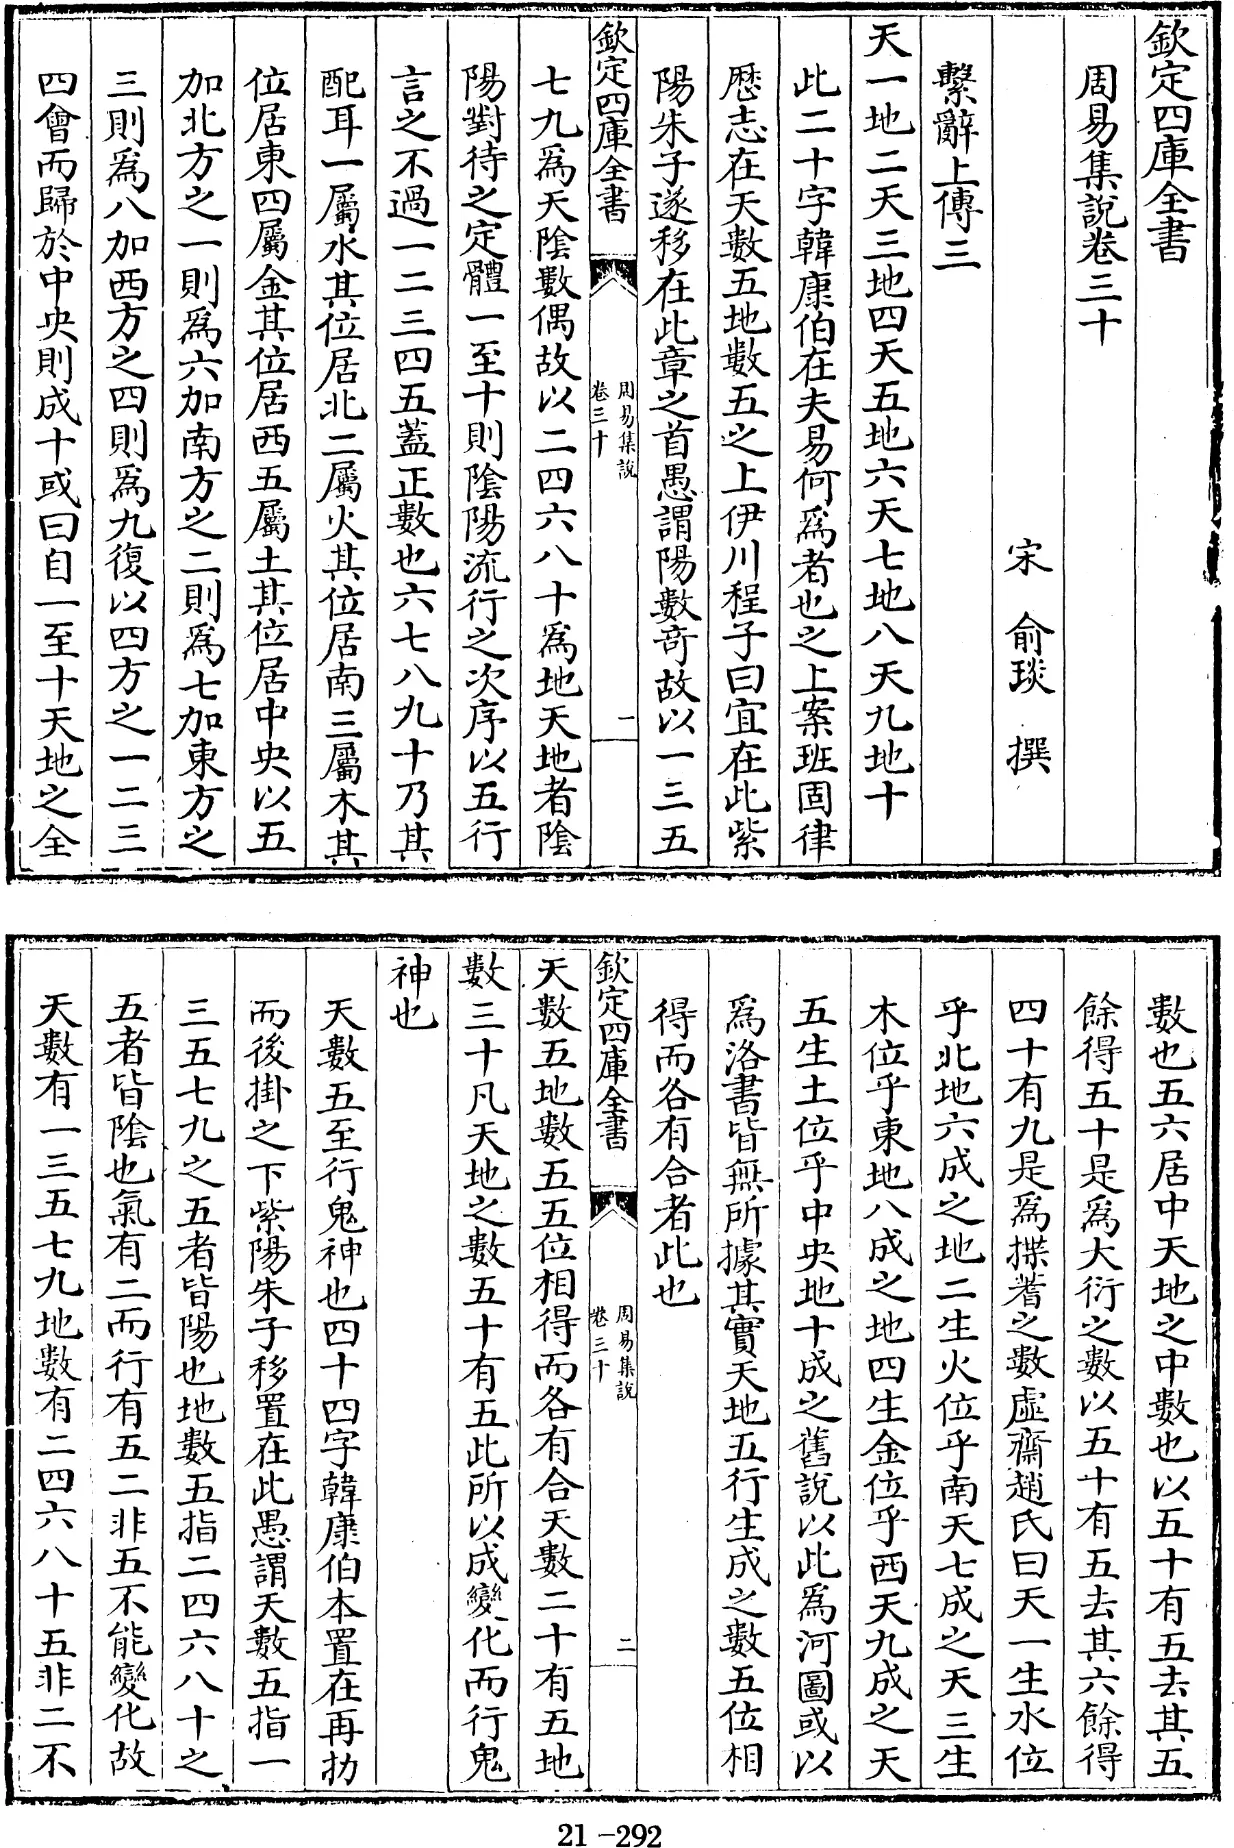 欽定四庫全書
周易集說卷三十
宋 俞琰 撰
繫辭上傳三
天一地二天三地四天五地六天七地八天九地十
此二十字韓康伯在夫易何爲者也之上案班固律
歴志在天數五地數五之上伊川程子曰宜在此紫
陽朱子遂移在此章之首愚謂陽數奇故以一三五
欽定四庫全書
周易集說
卷三十
一
七九爲天陰數偶故以二四六八十爲地天地者陰
陽對待之定體一至十則陰陽流行之次序以五行
言之不過一二三四五蓋正數也六七八九十乃其
配耳一屬水其位居北二屬火其位居南三屬木其
位居東四屬金其位居西五屬土其位居中央以五
加北方之一則爲六加南方之二則爲七加東方之
三則爲八加西方之四則爲九復以四方之一二三
四會而歸於中央則成十或曰自一至十天地之全
數也五六居中天地之中數也以五十有五去其五
餘得五十是爲大衍之數以五十有五去其六餘得
四十有九是爲揲蓍之數虛齋趙氏曰天一生水位
乎北地六成之地二生火位乎南天七成之天三生
木位乎東地八成之地四生金位乎西天九成之天
五生土位乎中央地十成之舊說以此爲河圖或以
爲洛書皆無所據其實天地五行生成之數五位相
得而各有合者此也
欽定四庫全書
周易集說
卷三十
二
天數五地數五五位相得而各有合天數二十有五地
數三十凡天地之數五十有五此所以成變化而行鬼
神也
天數五至行鬼神也四十四字韓康伯本置在再扐
而後掛之下紫陽朱子移置在此愚謂天數五指一
三五七九之五者皆陽也地數五指二四六八十之
五者皆陰也氣有二而行有五二非五不能變化故
天數有一三五七九地數有二四六八十五非二不
21-292